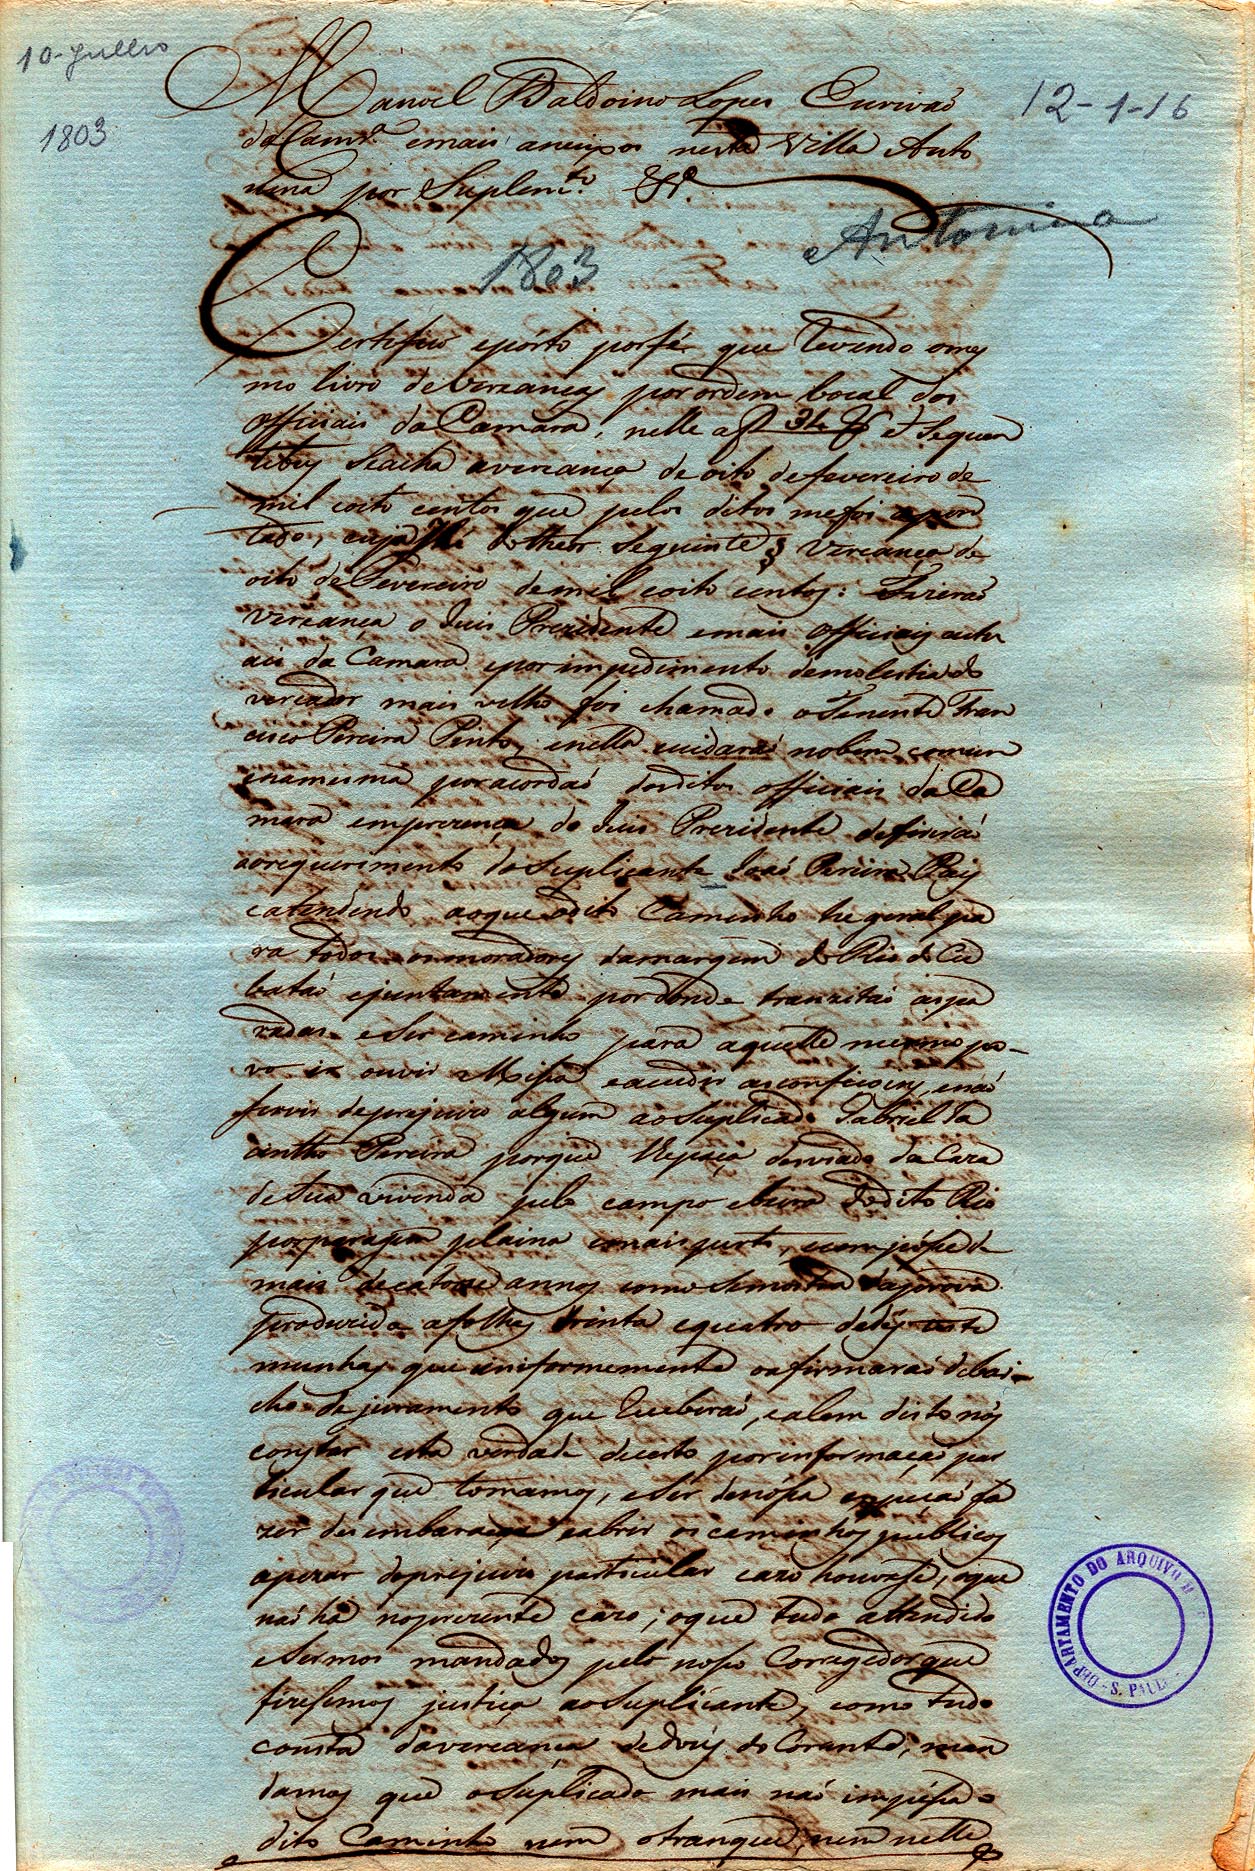 10-Julho
1803
12-1-16
Manoel Baldoino Lopes Escrivaõ
da Camr.ª emais anexos nesta Villa Anto
nina por Suplem.to &ª.
Antonina
1803
Certifico epórto porfé que Revendo omes
mo livro deVereanças por ordem bocal dos
Officiais da Camara, nelle af 34 e Seguen
tes Seacha avereança de oito defevereiro de
mil eoito centos que pelos ditos mefoi apon
tado, cuja hé otheor Seguinte § Vereança de
oito de Fevereiro demil eoito centos: Fizeraõ
Vereança o Juis Prezidente emais Officiais actu
ais da Camara eporimpedimento demolestia do
vereador mais velho foi chamado oTenente Fran
cisco Pereira Pinto, enella cuidaraõ nobem comum
enamesma poracordaõ dosditos officiais da Ca
mara emprezença do Juis Prezidente defiriraõ
aorequerimento doSuplicante Joaõ Pereira Reis
eatendendo aoque odito Caminho he geral pa
ra todos osmoradores damargem do Rio do Cu
bataõ ejuntamente pordonde tranzitaõ aspa
radas eSer caminho para aquelle mesmo po-
vo ir ouvir Missa eacudir asconficoens, enaõ
servir deprejuizo algum aoSuplicado Gabriel Ja
cintho Pereira porque lhepaça desviado da Caza
deSua vivenda pelo campo ebeira dodito Rio
porparagem plaina emais perto, ecomposse de
mais decatorze annos como Semostra daprova
produzida afolhas trinta equatro dedes teste
munhas que uniformemente oafirmaraõ debai-
cho dejuramento que Receberaõ, ealem disto nos
constar esta verdade decerto porinformaçaõ par
ticular que tomamos, eSer denóssa obrigaçaõ fa
zer desembaraçar eabrir oscaminhos publicos
apezar deprejuizo particular cazo houvesse, oque
naõ há noprezente cazo; oque tudo attendido
eSermos mandados pelo nosso Corregedor que
fizessemos justiça aoSuplicante, como tudo
consta davereança dedois do Corrente, man
damos que oSuplicado mais naõ impessa o
dito Caminho nem otranque, nem nelle
DEPARTAMENTO DO ARQUIVO
S. PAULO